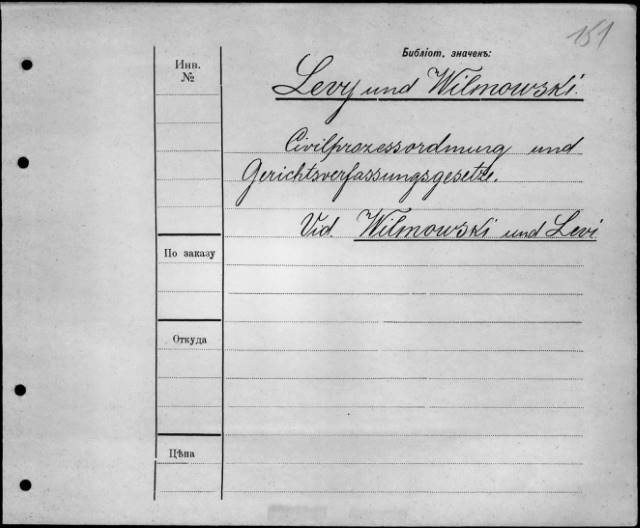 151
Библіот. значекъ:
Инв.
№
Levy und Wilmowski.
Civilprozessordnung und
Gerichtsverfassungsgesetze.
Vid. Wilmowski und Levi
По заказу
Откуда
Цѣна